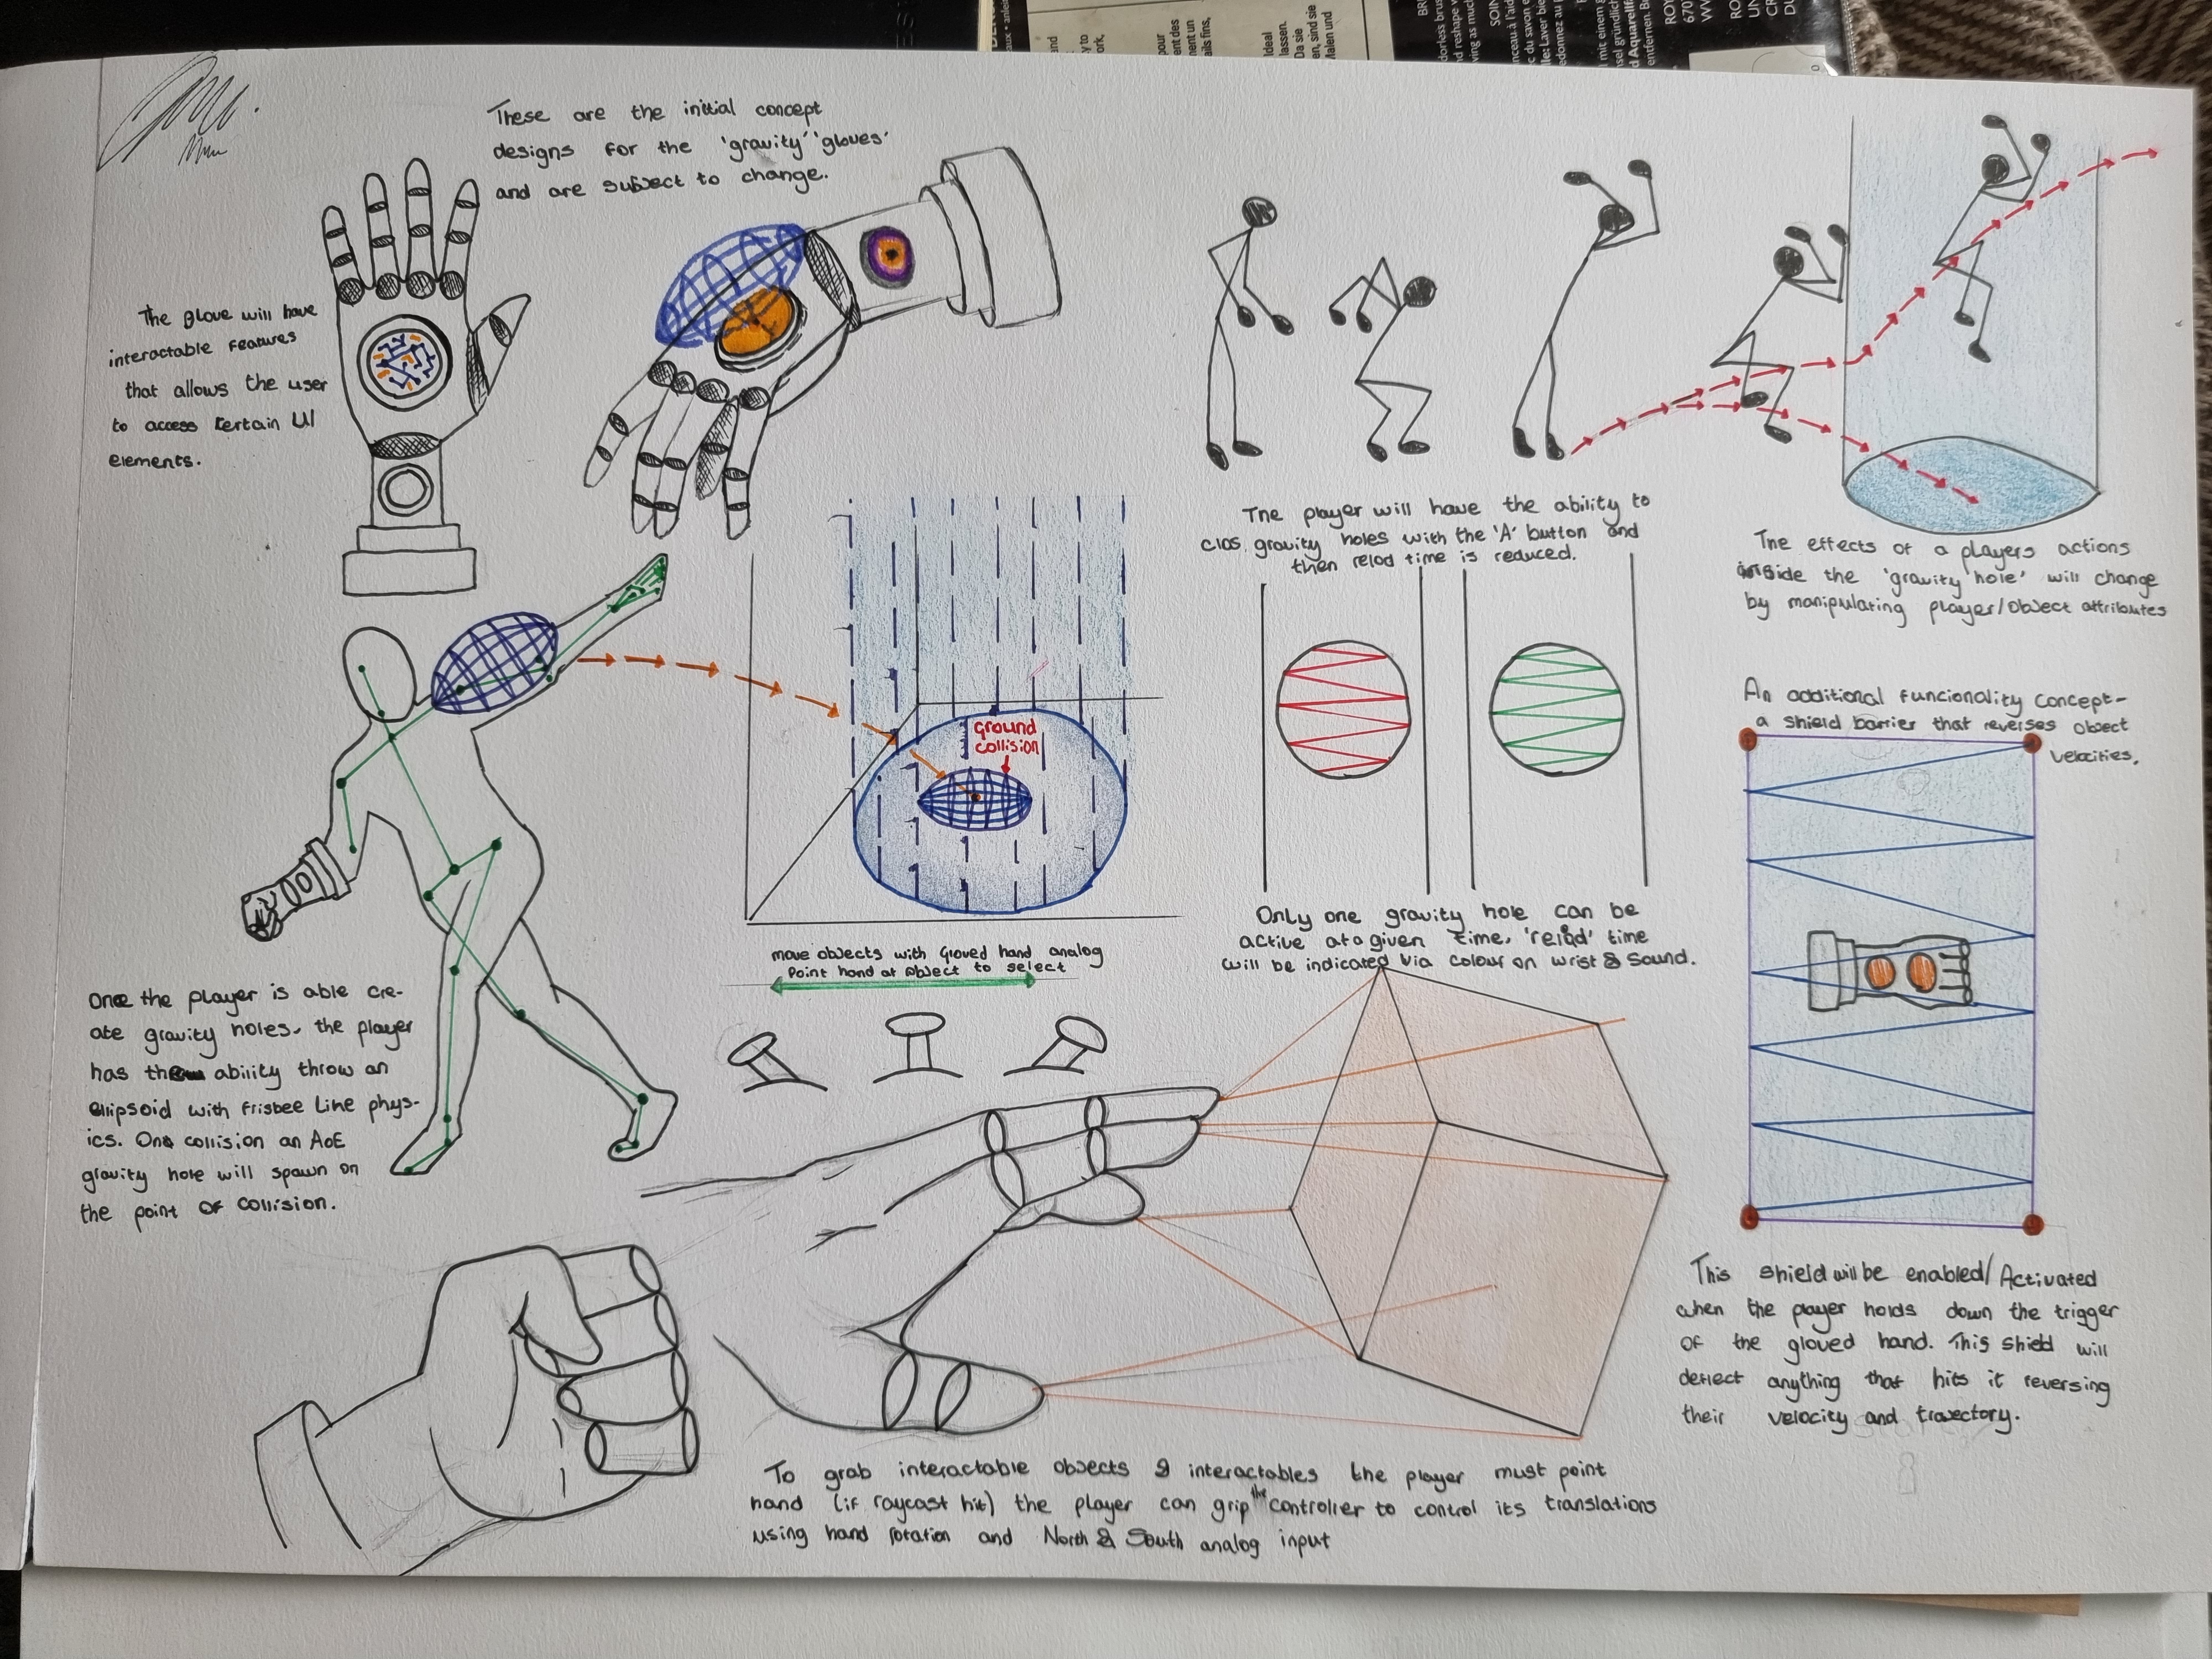 These are the initial concept
designs for the 'gravity' 'gloves'
and are subject to change.
The glove will have
interactable features
that allows the user
to access certain UI
elements.
The player will have the ability to
clos gravity holes with the 'A' button and
then relod time is reduced.
The effects of a players actions
inside the 'gravity hole' will change
by manipulating player/object attributes
ground
collision
An additional funcionality concept-
a shield barrier that reverses object
velocities.
Only one gravity hole can be
active at a given time. 'relod' time
will be indicated via colour on wrist & sound.
move objects with Gloved hand analog
Point hand at object to select
Once the player is able cre-
ate gravity holes, the player
has the ability throw an
ellipsoid with frisbee like phys-
ics. On collision an AoE
gravity hole will spawn on
the point of collision.
This shield will be enabled/Activated
when the player holds down the trigger
of the gloved hand. This shield will
deflect anything that hits it reversing
their velocity and trajectory.
To grab interactable objects & interactables the player must point
hand (if raycast hit) the player can grip the controller to control its translations
using hand rotation and North & South analog input